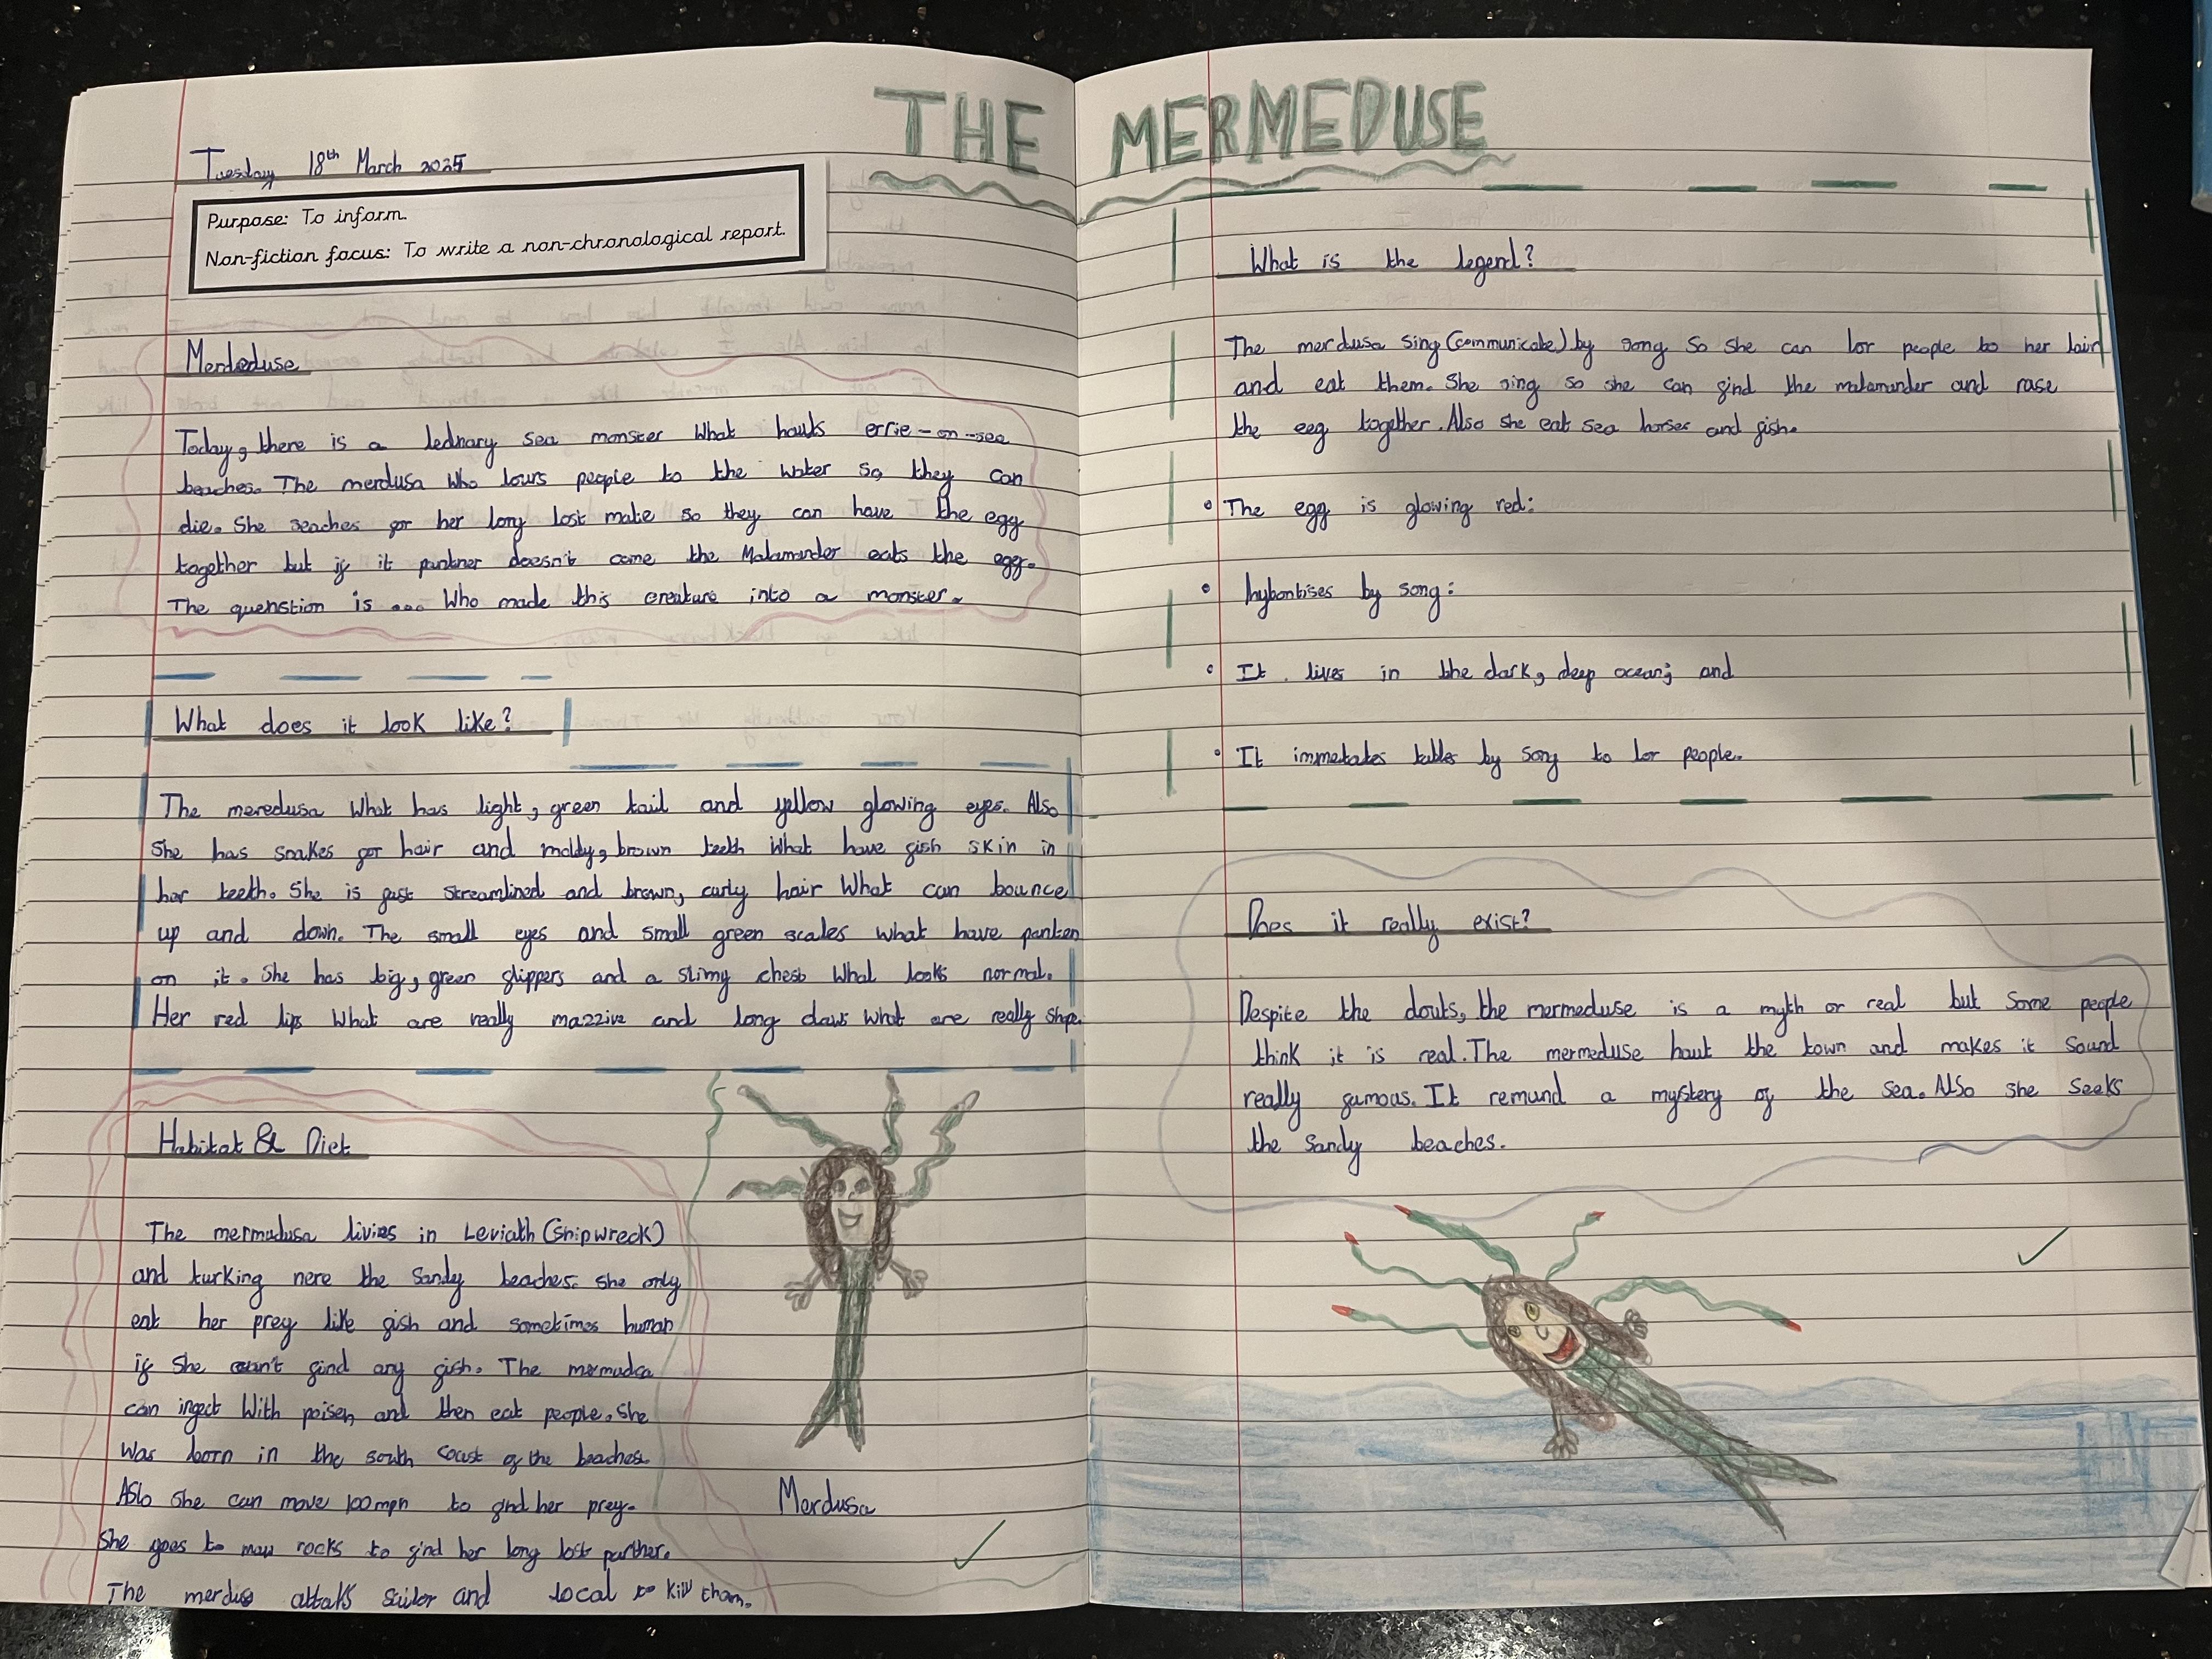 THE MERMEDUSE
Tuesday 18th March 2025
Purpose: To inform.
Non-fiction focus: To write a non-chronological report.
Merdeduse
Today, there is a lednary sea monster What hauts errie-on-sea
beaches. The merdusa Who lours people to the water so, they can
die. She seaches for her long lost mate so they can have the egg
together but if it pantner doesn't come the Malamander eats the egg.
The quenstion is ... Who made this creature into a monster.
What does it look like?
The meredusa What has light, green tail and yellow glowing eyes. Also
She has snakes for hair and moldy, brown teeth What have fish skin in
her teeth. She is fast streamlined and brown, curly hair What can bounce
up and down. The small eyes and small green scales what have panten
on it. She has big, green flippers and a slimy chest What looks normal.
Her red lips What are really mazzive and long claws What are really shpe.
Habitat & Diet
The mermudusa livies in Leviath (Shipwreck)
and turking nere the Sandy beaches. She only
eat her prey like fish and sometimes human
if She can't find any fish. The mermudsa
can infect With poisen, and then eat people. She
Was born in the south coast of the beaches.
Aslo She can move 100mph to find her prey.
She goes to rocks to find her long lost parther.
The merdus attaks Sailor and local to kill tham.
Merdusa
What is the legend?
The merdusa Sing (communicate) by song So She can lor people to her lair
and eat them. She sing so she can find the malamander and rase
the eeg together. Also she eat sea horses and fish.
• The egg is glowing red:
• hybontises by song:
• It lives in the dark, deep ocean; and
• It immetates tables by song to lor people.
Does it really exist?
Despite the douts, the mermeduse is a myth or real but Some people
think it is real. The mermeduse haut the town and makes it Sound
really famous. It remund a mystery of the sea. Also she Seeks
the Sandy beaches.